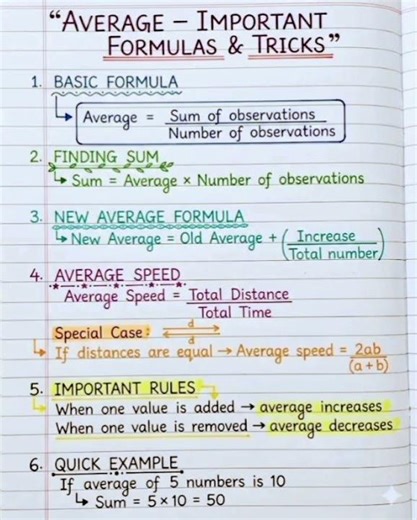 “AVERAGE – IMPORTANT
FORMULAS & TRICKS”
1. BASIC FORMULA
Average = Sum of observations
Number of observations
2. FINDING SUM
Sum = Average × Number of observations
3. NEW AVERAGE FORMULA
New Average = Old Average + (Increase
Total number)
4. AVERAGE SPEED
Average Speed = Total Distance
Total Time
Special Case: d
d
If distances are equal → Average speed = 2ab
(a+b)
5. IMPORTANT RULES
When one value is added → average increases
When one value is removed → average decreases
6. QUICK EXAMPLE
If average of 5 numbers is 10
Sum = 5×10 = 50